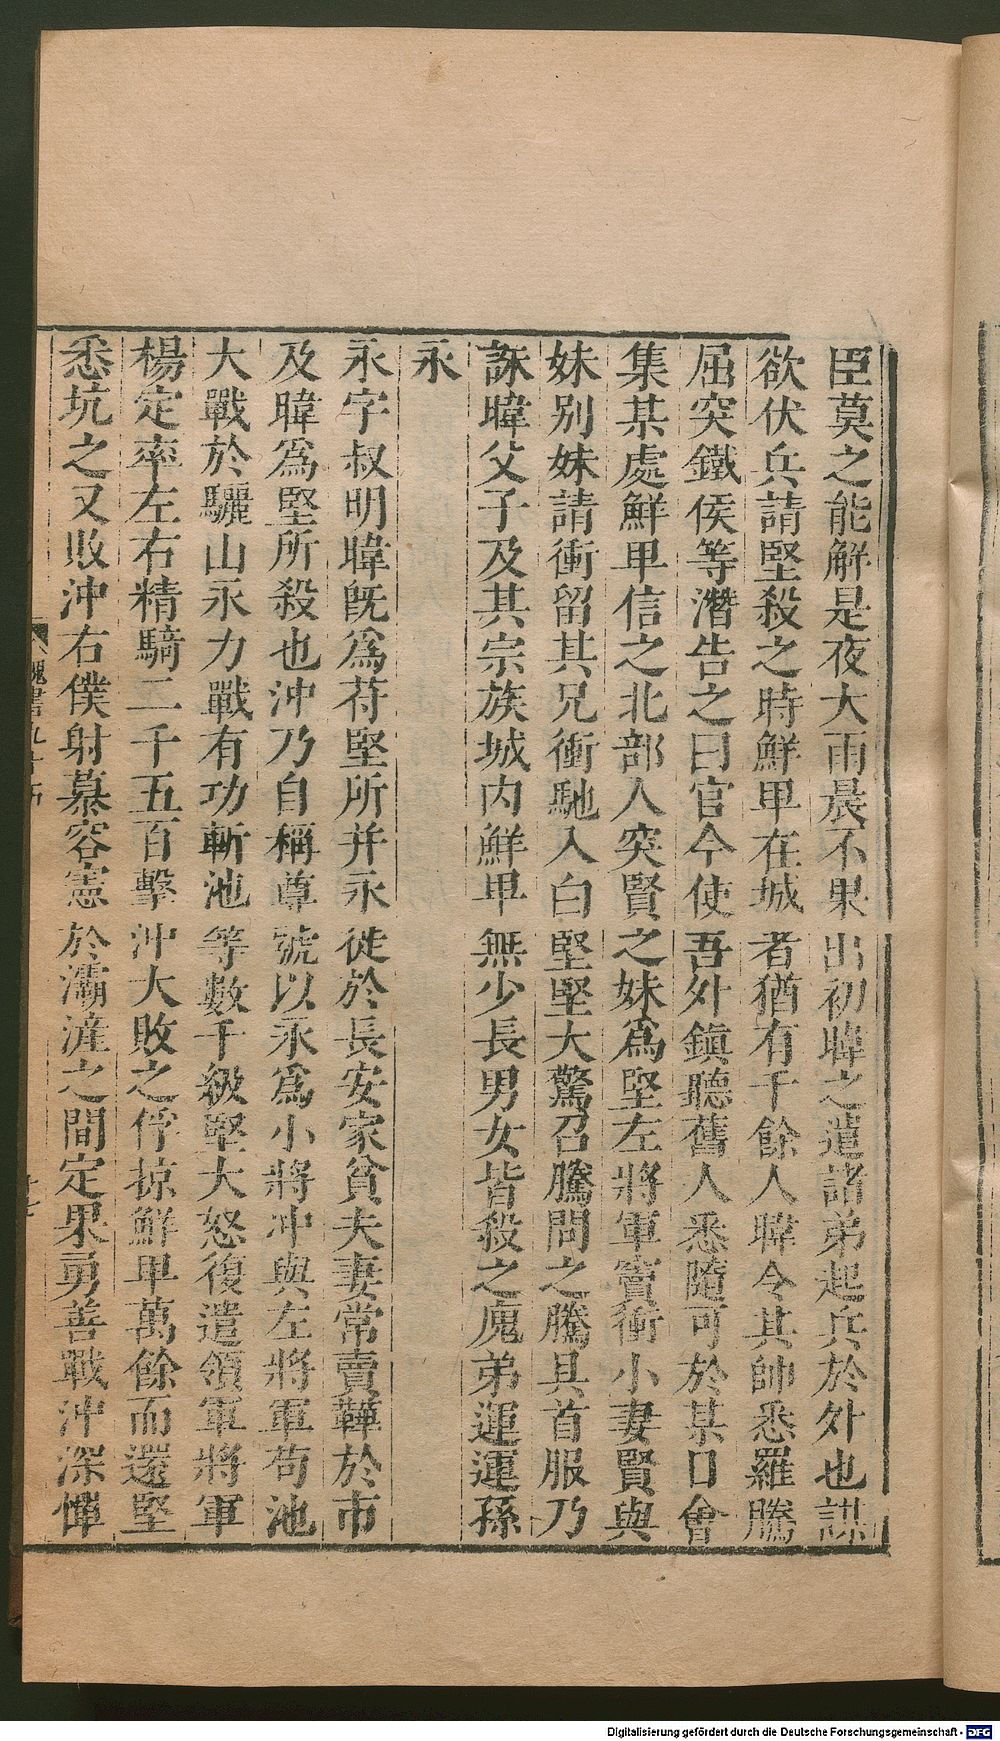 臣莫之能解是夜大雨晨不果出初暐之遣諸弟起兵於外也謀
欲伏兵請堅殺之時鮮卑在城者猶有千餘人暐令其帥悉羅騰
屈突鐵侯等潛告之曰官今使吾外鎮聽舊人悉隨可於某日會
集某處鮮卑信之北部人突賢之妹為堅左將軍竇衝小妻賢與
妹別妹請衝留其兄衝馳入白堅堅大驚召騰問之騰具首服乃
誅暐父子及其宗族城內鮮卑無少長男女皆殺之廆弟運運孫
永
永字叔明暐既為苻堅所并永徙於長安家貧夫妻常賣鞾於市
及暐為堅所殺也沖乃自稱尊號以永為小將沖與左將軍苟池
大戰於驪山永力戰有功斬池等數千級堅大怒復遣領軍將軍
楊定率左右精騎二千五百擊沖大敗之俘掠鮮卑萬餘而還堅
悉坑之又敗沖右僕射慕容憲於灞滻之間定果勇善戰沖深憚
魏書九十五
Digitalisierung gefördert durch die Deutsche Forschungsgemeinschaft - DFG